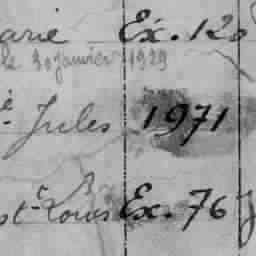 arie Ex. 120
le 30 janvier 1929
é Jules 1971
st Louis Ex. 76